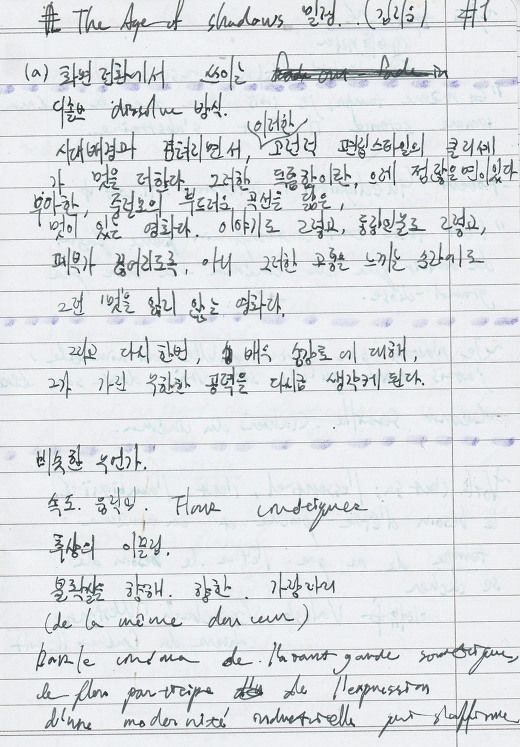 # The Age of shadows 밀정.. (김지운) #1
(a) 화면 전환에서 쓰이는
디졸브 dissolve 방식.
이러한
시대배경과 맞물리면서, 고전적 편집스타일의 클리셰
가 멋을 더한다. 그러한 독특함이란, 으레 전략을 면이 있다
우아한, 중절모의 부드러운 곡선을 닮은,
멋이 있는 영화다. 이야기도 그렇고, 등장인물도 그렇고,
폐부가 끊어지도록, 아니 그러한 고통을 느끼는 순간에도
그런 '멋'을 잃지 않는 영화다.
그리고 다시 한번, 배우 송강호에 대해,
그가 가진 무한한 공력을 다시금 생각케 된다.
비슷한 누언가.
속도. 움직임. Flous
폭상의 이끌림.
향해. 향한. 가장자리
(de la même douceur)
Dans le cinéma de l'avant garde soviétique,
le flou participe de l'expression
d'une modernité industrielle qui s'affirme